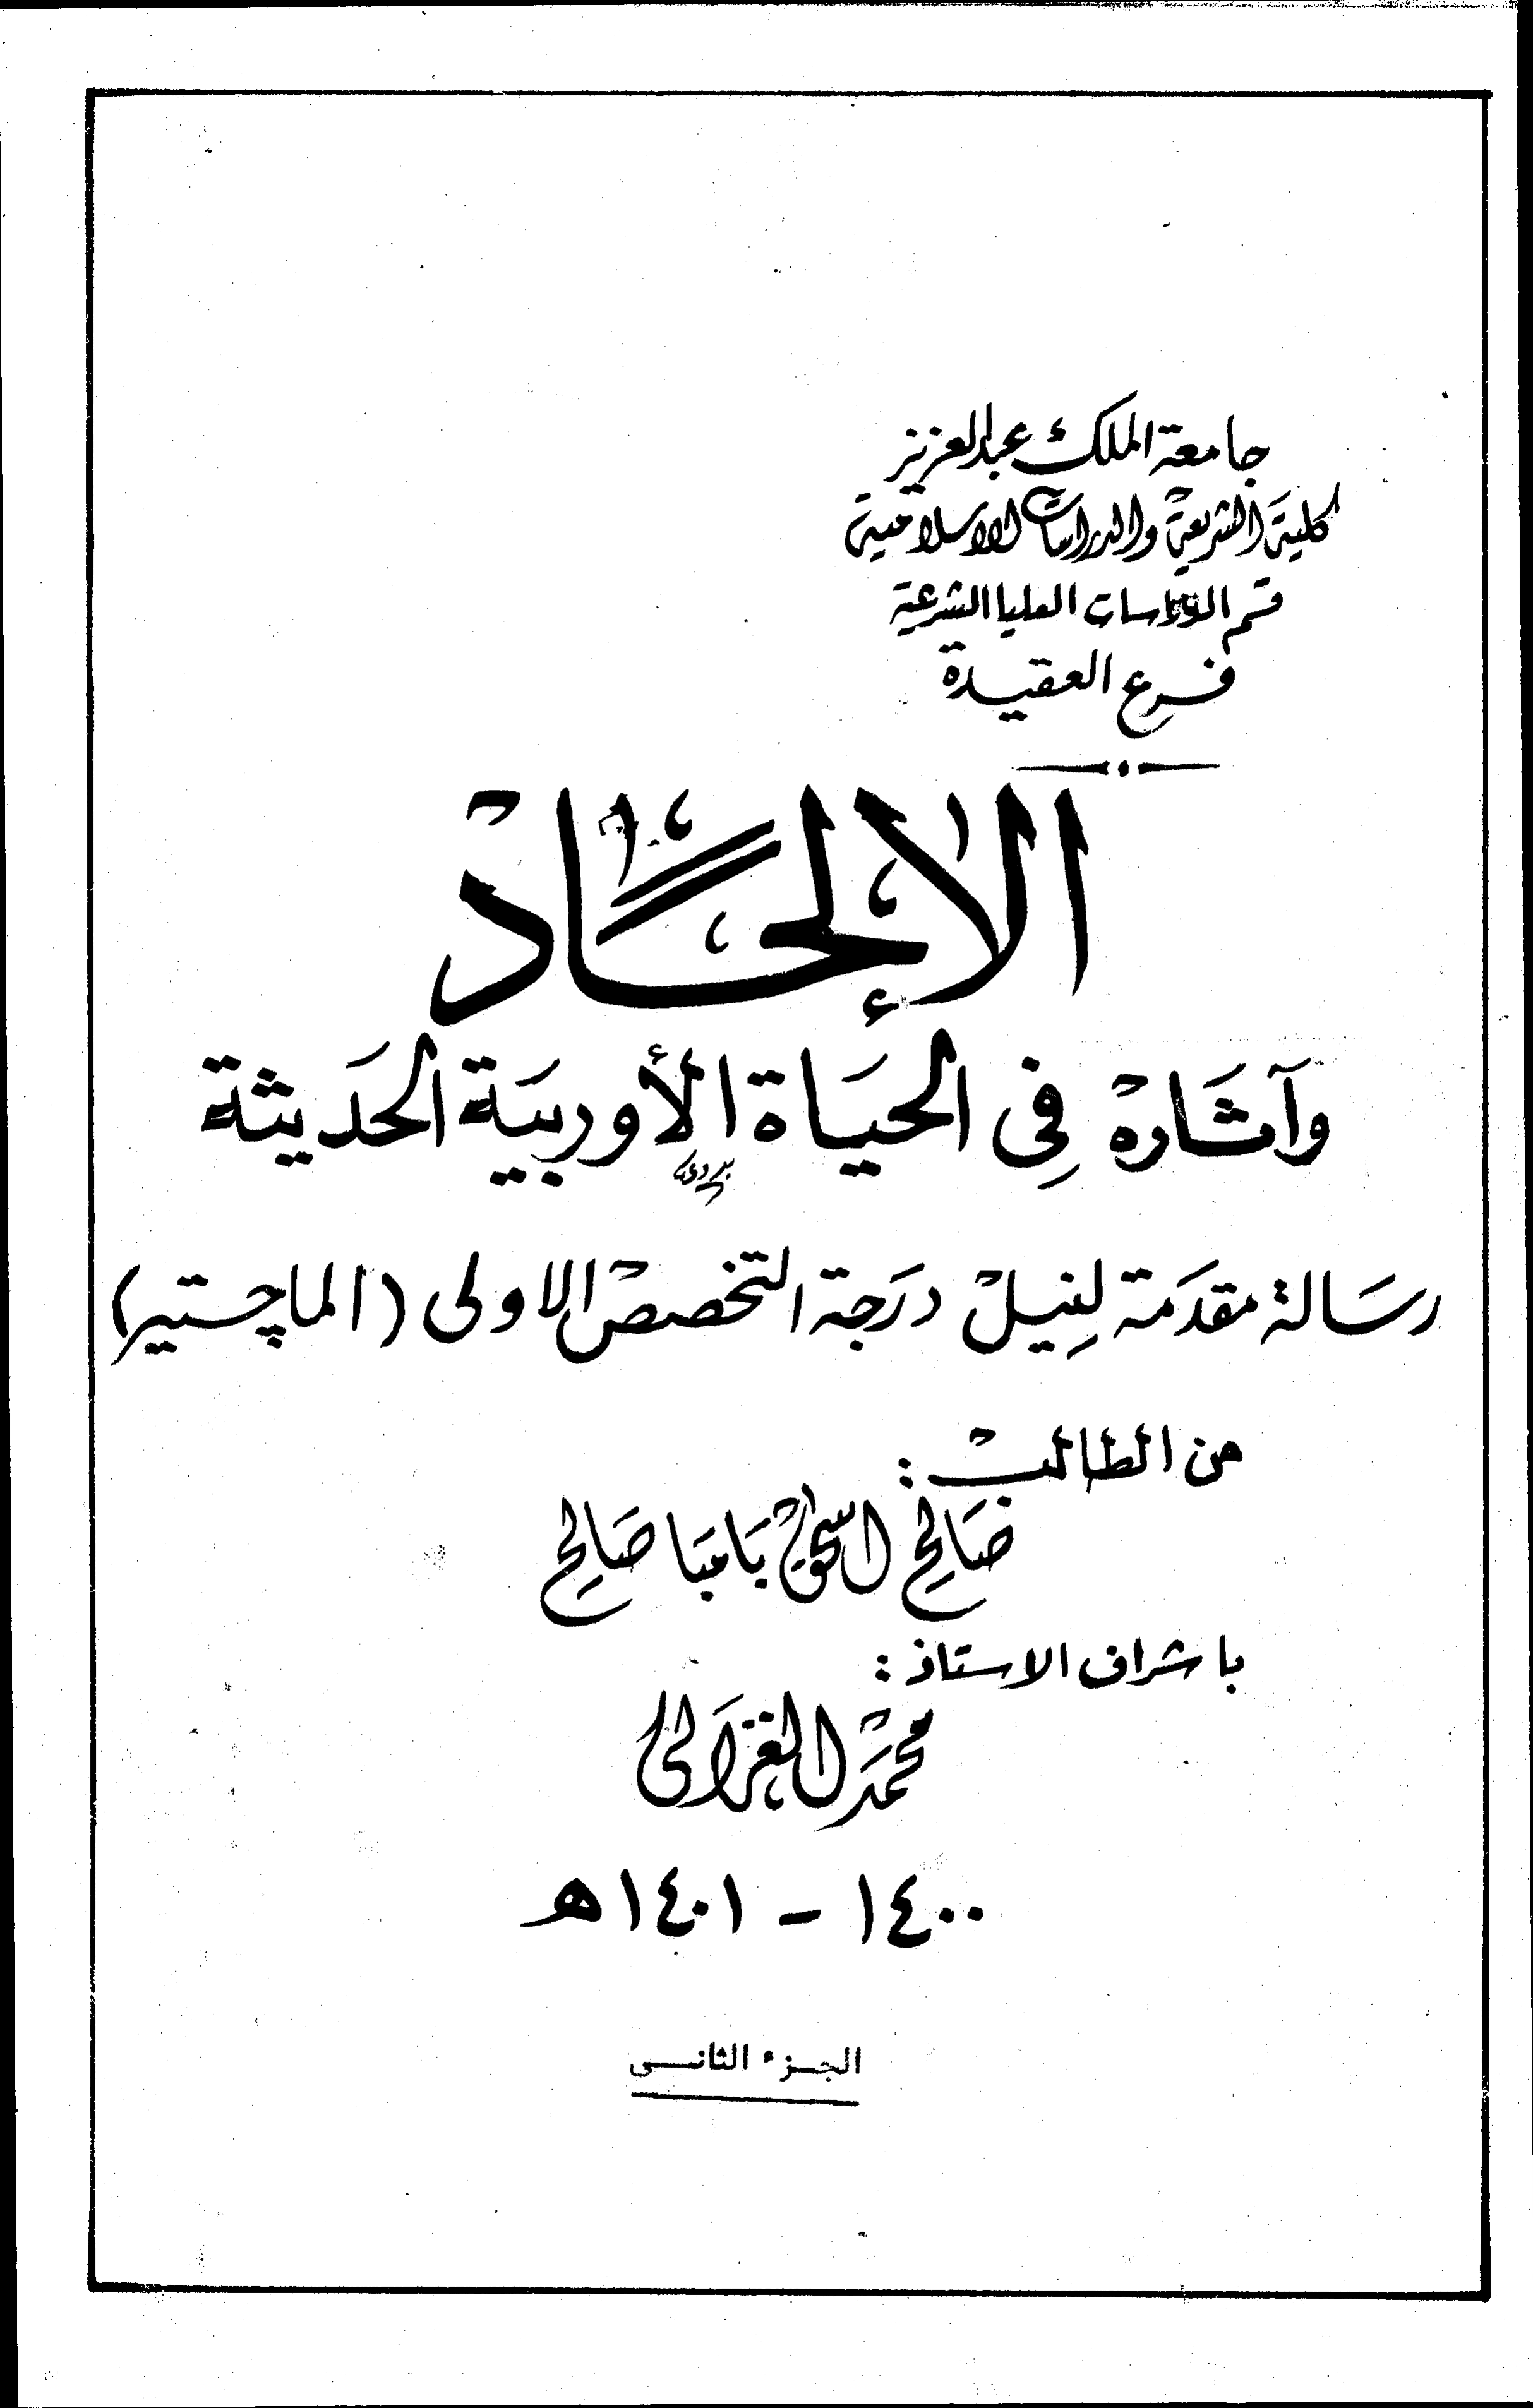 جامعة الملك عبدالعزيز
كلية الشريعة والدراسات الاسلامية
قسم الدراسات العليا الشرعية
فرع العقيدة
الإلحاد
وآثاره فى الحياة الأوربية الحديثة
رسالة مقدمة لنيل درجة التخصص الاولى (الماچستير)
من الطالب:
صالح اسحق بامبا صالح
باشراف الاستاذ:
محمد الغزالى
١٤٠٠ - ١٤٠١ھ
الجزء الثانى